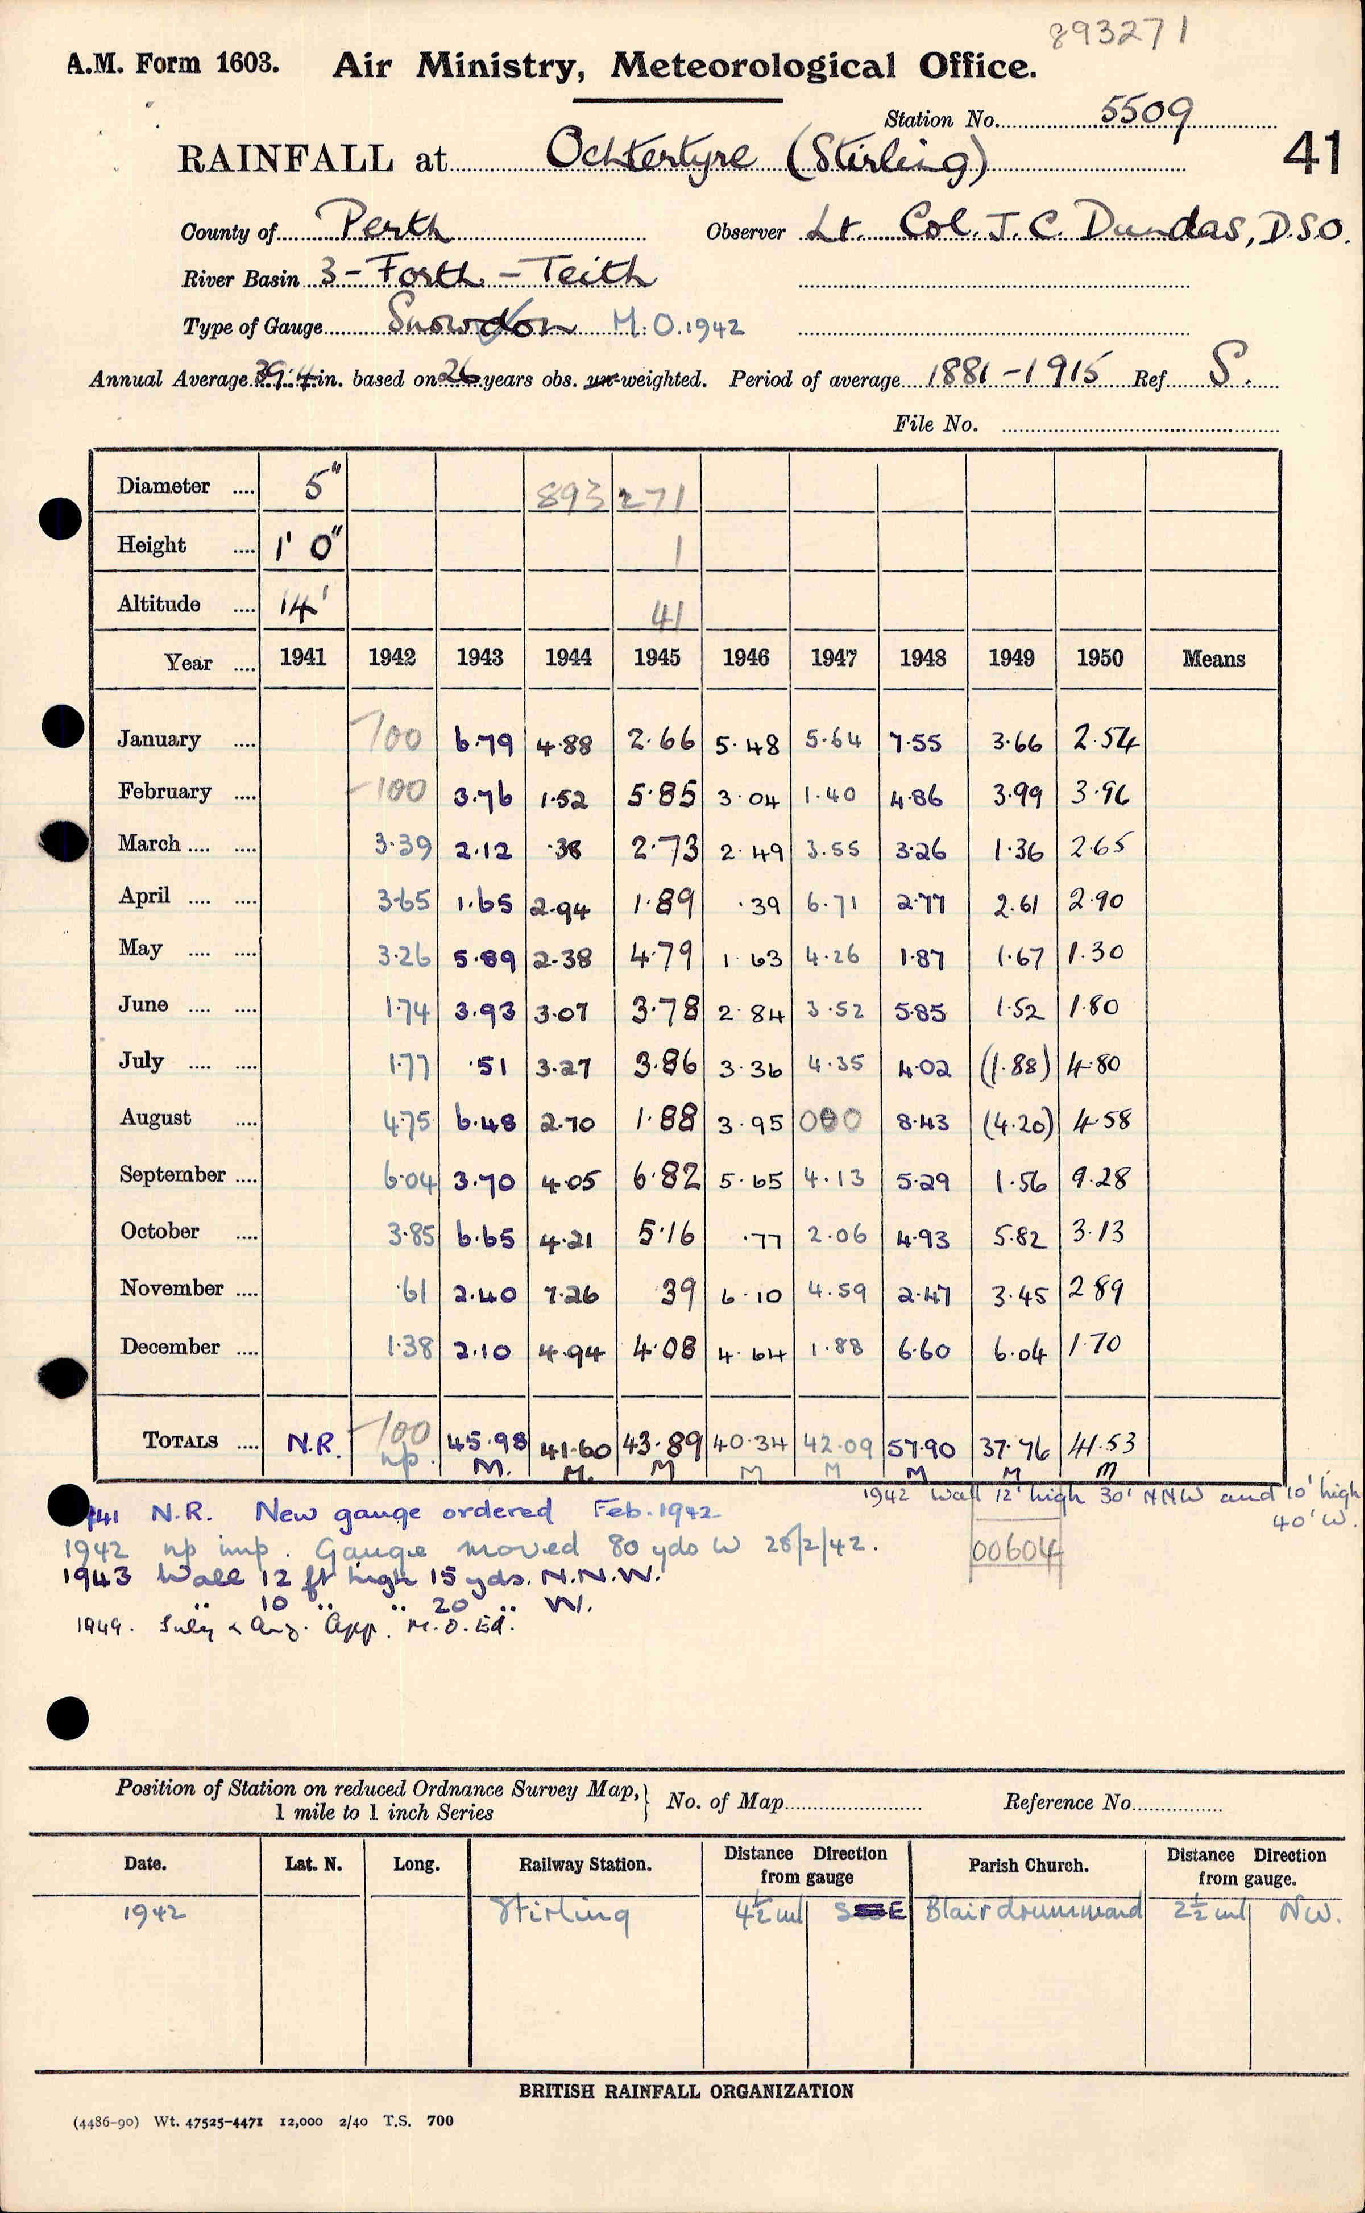 893271
A.M. Form 1603. Air Ministry, Meteorological Office.
Station No. 5509
41
RAINFALL at Ochtertyre (Stirling)
County of Perth Observer Lt. Col. J. C. Dundas, D.S.O.
River Basin 3 - Forth - Teith
Type of Gauge Snowdon M.O.1942
Annual Average 39.4 in. based on 26 years obs. un-weighted. Period of average 1881-1915 Ref S.
File No.
Diameter 5" 893 271
Height 1' 0" 1
Altitude 14' 41
Year 1941 1942 1943 1944 1945 1946 1947 1948 1949 1950 Means
January -100 6.79 4.88 2.66 5.48 5.64 7.55 3.66 2.54
February -100 3.76 1.52 5.85 3.04 1.40 4.86 3.99 3.96
March 3.39 2.12 .38 2.73 2.49 3.55 3.26 1.36 2.65
April 3.65 1.65 2.94 1.89 .39 6.71 2.77 2.61 2.90
May 3.26 5.89 2.38 4.79 1.63 4.26 1.87 1.67 1.30
June 1.74 3.93 3.07 3.78 2.84 3.52 5.85 1.52 1.80
July 1.77 .51 3.27 3.86 3.36 4.35 4.02 (1.88) 4.80
August 4.75 6.48 2.70 1.88 3.95 000 8.43 (4.20) 4.58
September 6.04 3.70 4.05 6.82 5.65 4.13 5.29 1.56 9.28
October 3.85 6.65 4.21 5.16 .77 2.06 4.93 5.82 3.13
November .61 2.40 7.26 39 6.10 4.59 2.47 3.45 2.89
December 1.38 2.10 4.94 4.08 4.64 1.88 6.60 6.04 1.70
TOTALS N.R. -100 45.98 41.60 43.89 40.34 42.09 57.90 37.76 41.53
np. M. M. M M M M M M
1942 Wall 12' high 30' NNW and 10' high
40' W.
41 N.R. New gauge ordered Feb. 1942
1942 np imp. Gauge moved 80 yds W 28/2/42.
00604
1943 Wall 12 ft high 15 yds. N.N.W.
" 10 " " 20 " W.
1949. July & Aug. App. M.O. Ed.
Position of Station on reduced Ordnance Survey Map, 1 mile to 1 inch Series } No. of Map Reference No.
Date. Lat. N. Long. Railway Station. Distance Direction from gauge Parish Church. Distance Direction from gauge.
1942 Stirling 4½ ml E Blairdrummond 2½ ml NW.
BRITISH RAINFALL ORGANIZATION
(4486-90) Wt. 47525-4471 12,000 2/40 T.S. 700